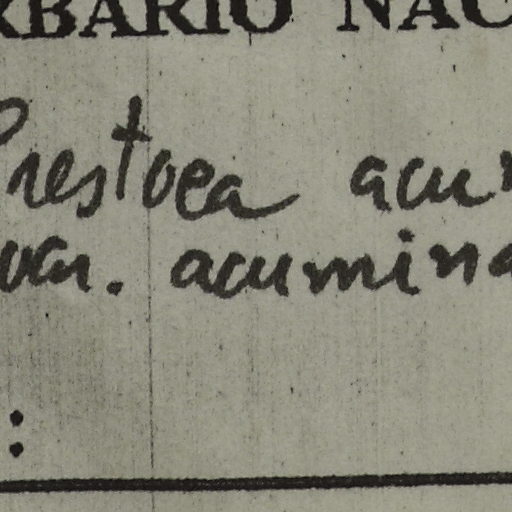 RBARIO NAC
Prestoea acu
var. acumina
: